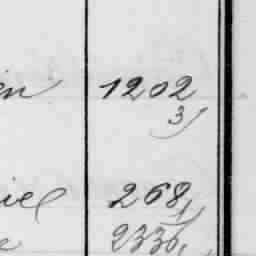 en 1202
3)
iel 268
2336